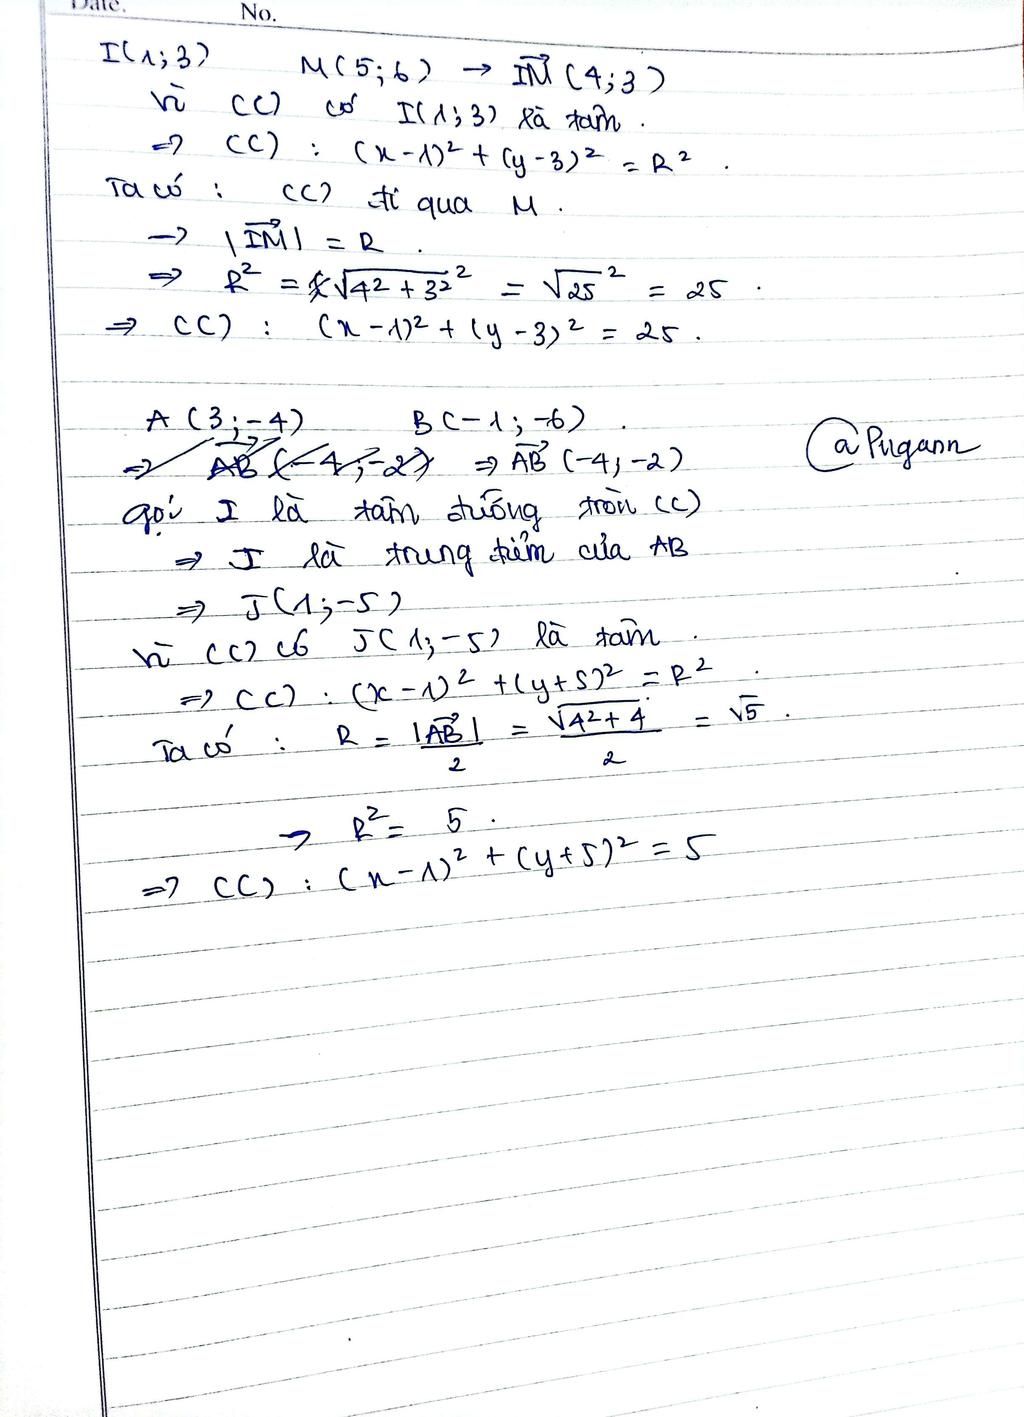 Date. No.
I(1;3) M(5;6) → IM (4;3)
Vì (C) có I(1;3) là tâm.
=> (C) : (x-1)² + (y-3)² = R².
Ta có : (C) đi qua M.
→ |IM| = R.
=> R² = √4² + 3²² = √25² = 25.
=> (C) : (x-1)² + (y-3)² = 25.
A (3;-4) B(-1;-6).
=> AB (-4;-2) => AB (-4;-2)
@Pugann
gọi I là tâm đường tròn (C)
=> I là trung điểm của AB
=> I(1;-5)
Vì (C) có I(1;-5) là tâm.
=> (C) : (x-1)² + (y+5)² = R².
Ta có : R = |AB|/2 = √4²+4/2 = √5.
→ R² = 5.
=> (C) : (x-1)² + (y+5)² = 5